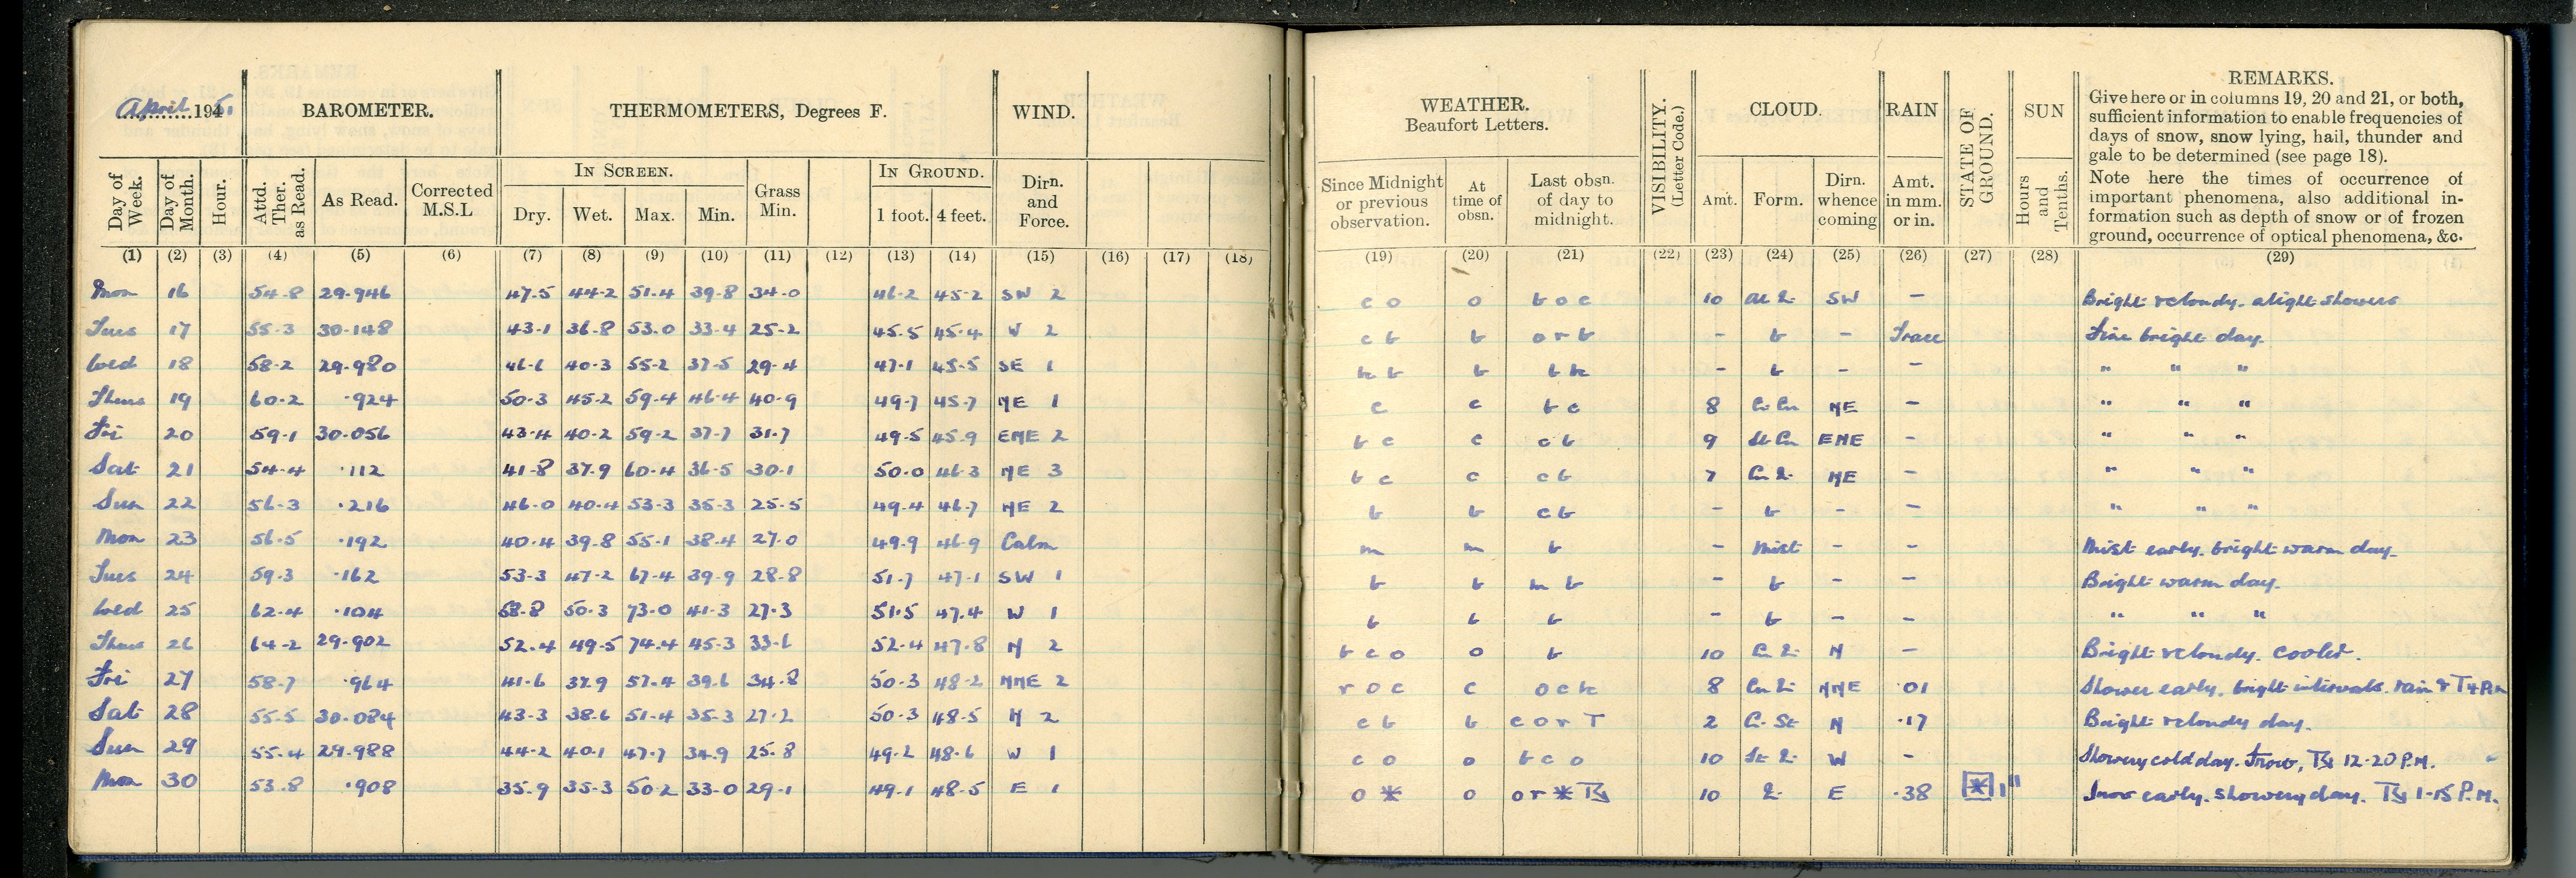 April 1951
BAROMETER.
THERMOMETERS, Degrees F.
WIND.
WEATHER.
Beaufort Letters.
VISIBILITY.
(Letter Code.)
CLOUD.
RAIN
STATE OF
GROUND.
SUN
REMARKS.
Give here or in columns 19, 20 and 21, or both,
sufficient information to enable frequencies of
days of snow, snow lying, hail, thunder and
gale to be determined (see page 18).
Note here the times of occurrence of
important phenomena, also additional in-
formation such as depth of snow or of frozen
ground, occurrence of optical phenomena, &c.
Day of Week.
Day of Month.
Hour.
Attd. Ther. as Read.
As Read.
Corrected M.S.L
IN SCREEN.
Dry. Wet. Max. Min.
Grass Min.
IN GROUND.
1 foot. 4 feet.
Dirn. and Force.
Since Midnight or previous observation.
At time of obsn.
Last obsn. of day to midnight.
Amt. Form. Dirn. whence coming
Amt. in mm. or in.
Hours and Tenths.
(1) (2) (3) (4) (5) (6) (7) (8) (9) (10) (11) (12) (13) (14) (15) (16) (17) (18) (19) (20) (21) (22) (23) (24) (25) (26) (27) (28) (29)
Mon 16 54.8 29.946 47.5 44.2 51.4 39.8 34.0 46.2 45.2 SW 2 c o o b o c 10 SW - Bright & cloudy. slight showers
Tues 17 55.3 30.148 43.1 36.8 53.0 33.4 25.2 45.5 45.4 W 2 c b b o r b - b - Trace Fine bright day.
Wed 18 58.2 29.980 46.6 40.3 55.2 37.5 29.4 47.1 45.5 SE 1 b b - b - - " " "
Thurs 19 60.2 .924 50.3 45.2 59.4 46.4 40.9 49.7 45.7 NE 1 c c b c 8 NE - " " "
Fri 20 59.1 30.056 43.4 40.2 59.2 37.7 31.7 49.5 45.9 ENE 2 b c c c b 9 St Cu ENE - " " "
Sat 21 54.4 .112 41.8 37.9 60.4 36.5 30.1 50.0 46.3 NE 3 b c c c b 7 NE - " " "
Sun 22 56.3 .216 46.0 40.4 53.3 35.3 25.5 49.4 46.7 NE 2 b b c b - b - - " " "
Mon 23 56.5 .192 40.4 39.8 55.1 38.4 27.0 49.9 46.9 Calm m m b - Mist - - Mist early. bright warm day.
Tues 24 59.3 .162 53.3 47.2 67.4 39.9 28.8 51.7 47.1 SW 1 b b m b - b - - Bright warm day.
Wed 25 62.4 .104 58.8 50.3 73.0 41.3 27.3 51.5 47.4 W 1 b b b - b - - " " "
Thurs 26 64.2 29.902 52.4 49.5 74.4 45.3 33.6 52.4 47.8 N 2 b c o o b 10 N - Bright & cloudy. cooler.
Fri 27 58.7 .964 41.6 37.9 57.4 39.6 34.8 50.3 48.2 NNE 2 r o c c 8 NNE .01 Shower early. bright intervals. rain & T 4 P.m
Sat 28 55.5 30.084 43.3 38.6 51.4 35.3 27.2 50.3 48.5 N 2 c b b c o r T 2 Ci St N .17 Bright & cloudy day.
Sun 29 55.4 29.988 44.2 40.1 47.7 34.9 25.8 49.2 48.6 W 1 c o o b c o 10 W - Showery cold day. Snow, 12-20 P.M.
Mon 30 53.8 .908 35.9 35.3 50.2 33.0 29.1 49.1 48.5 E 1 o * o o r * 10 E .38 * 1" Snow early. showery day. 1-15 P.M.